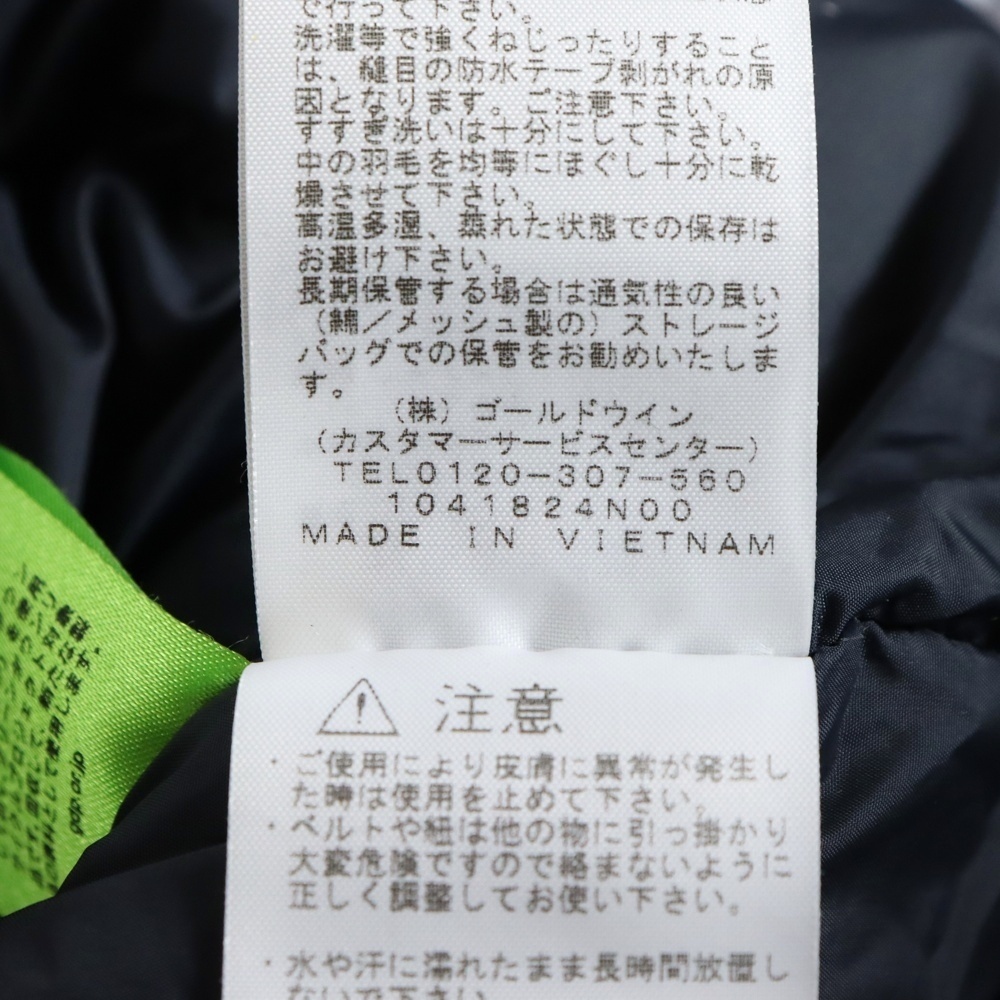 で行って下さい。
洗濯等で強くねじったりすること
は、縫目の防水テープ剥がれの原
因となります。ご注意下さい。
すすぎ洗いは十分にして下さい。
中の羽毛を均等にほぐし十分に乾
燥させて下さい。
高温多湿、蒸れた状態での保存は
お避け下さい。
長期保管する場合は通気性の良い
(綿/メッシュ製の)ストレージ
バッグでの保管をお勧めいたしま
す。
(株)ゴールドウイン
(カスタマーサービスセンター)
TEL0120-307-560
1041824N00
MADE IN VIETNAM
注意
・ご使用により皮膚に異常が発生し
た時は使用を止めて下さい。
・ベルトや紐は他の物に引っ掛かり
大変危険ですので絡まないように
正しく調整してお使い下さい。
・水や汗に濡れたまま長時間放置し
ないで下さい
gdp.or.jp